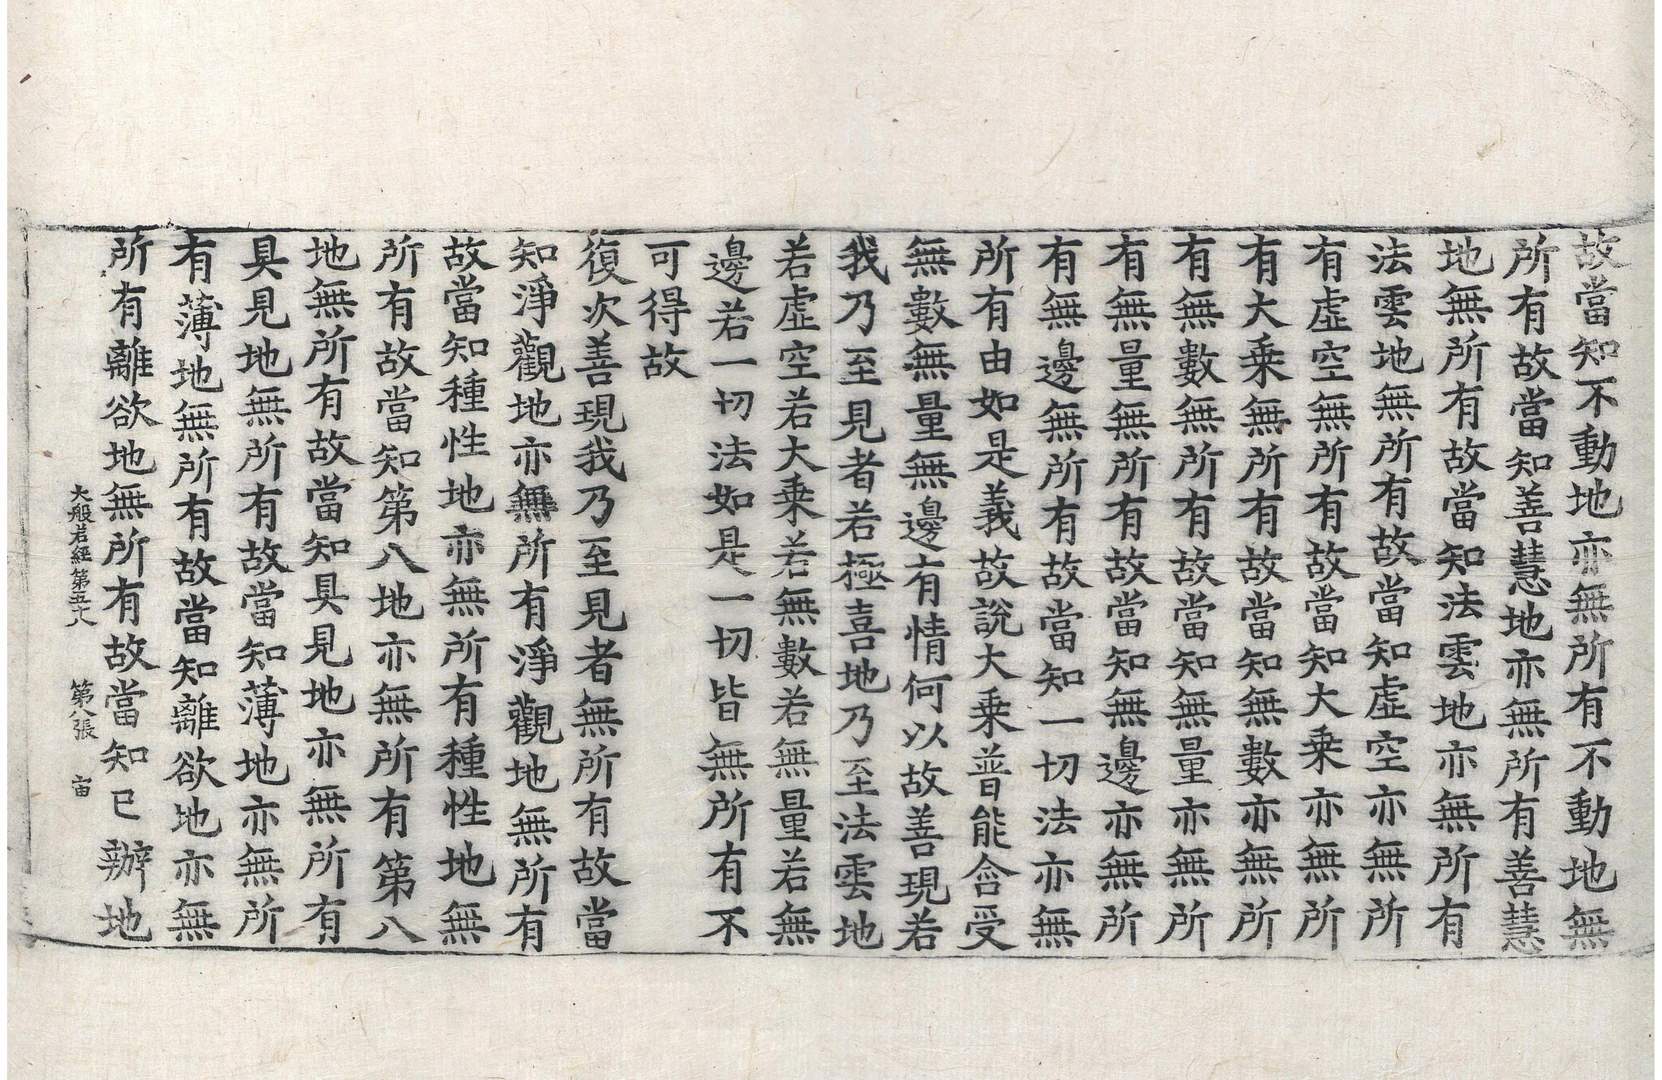 故當知不動地亦無所有不動地無
所有故當知善慧地亦無所有善慧
地無所有故當知法雲地亦無所有
法雲地無所有故當知虛空亦無所
有虛空無所有故當知大乘亦無所
有大乘無所有故當知無數亦無所
有無數無所有故當知無量亦無所
有無量無所有故當知無邊亦無所
有無邊無所有故當知一切法亦無
所有由如是義故說大乘普能含受
無數無量無邊有情何以故善現若
我乃至見者若極喜地乃至法雲地
若虛空若大乘若無數若無量若無
邊若一切法如是一切皆無所有不
可得故
復次善現我乃至見者無所有故當
知淨觀地亦無所有淨觀地無所有
故當知種性地亦無所有種性地無
所有故當知第八地亦無所有第八
地無所有故當知具見地亦無所有
具見地無所有故當知薄地亦無所
有薄地無所有故當知離欲地亦無
所有離欲地無所有故當知已辦地
大般若經第五十八 第八張 宙